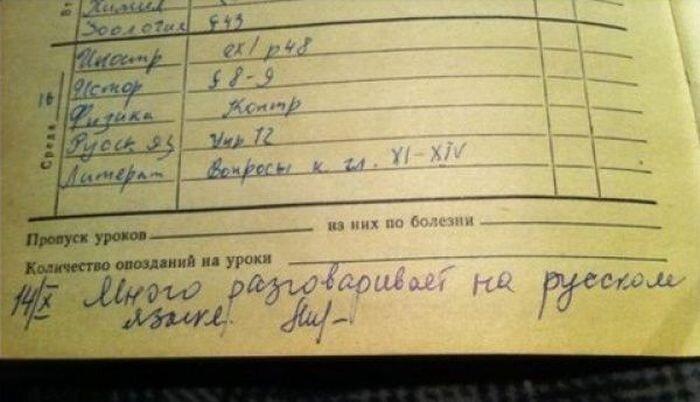 Химия
Зоология §43
Иностр ex1 p48
Среда 16
Истор § 8-9
Физика Контр
Русск яз Упр 12
Литерат Вопросы к гл. XI-XIV
Пропуск уроков из них по болезни
Количество опозданий на уроки
14/X Много разговаривает на русском
языке.